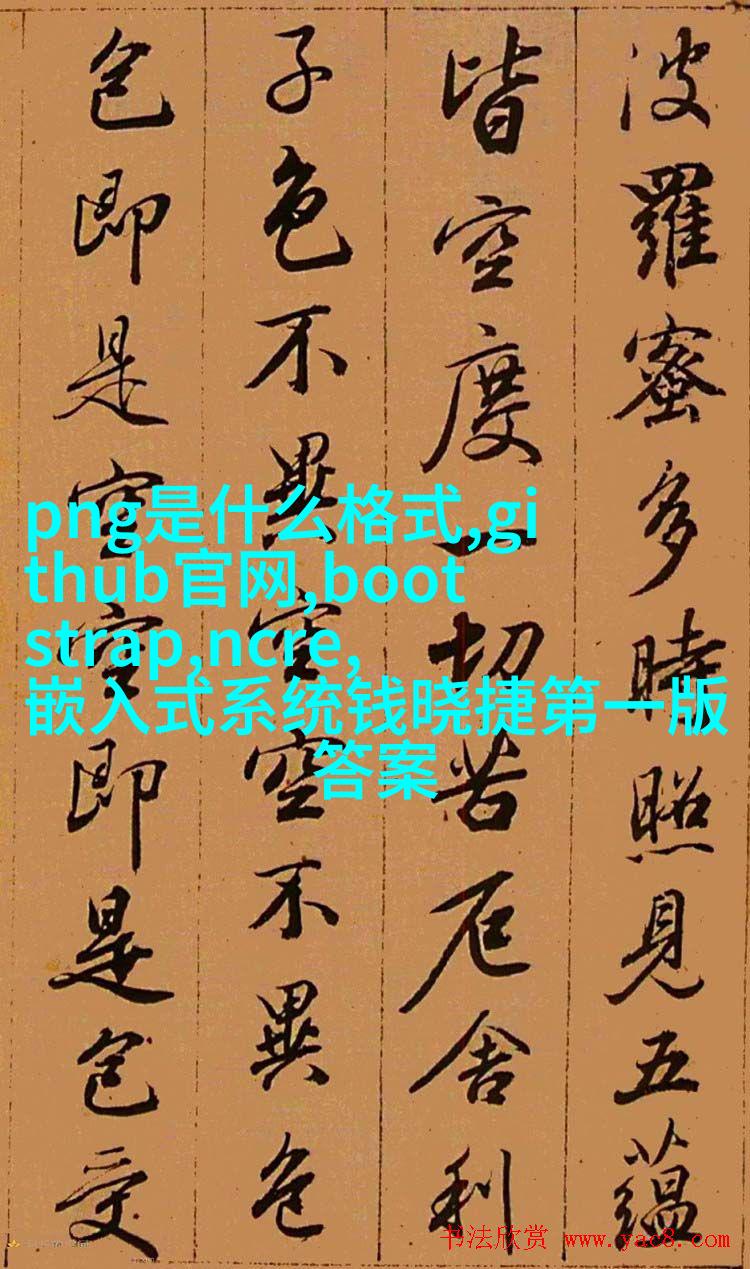 波羅蜜多時照見五蘊
皆空度一切苦厄舍利
子色不異空空不異色
色即是空空即是色受
png是什么格式,gi
thub官网,boot
strap,ncre,
嵌入式系统钱晓捷第一版
答案
书法欣赏 www.yac8.com